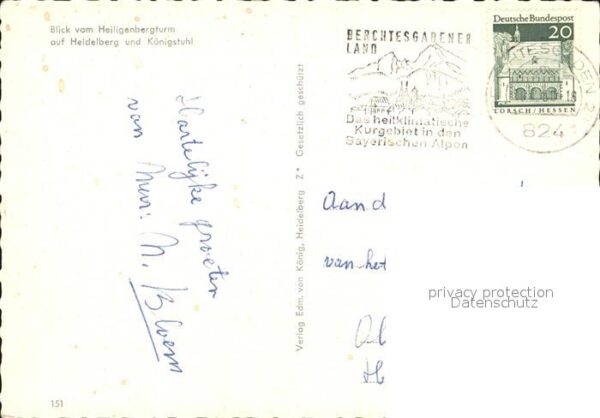 Blick vom Heiligenbergturm
auf Heidelberg und Königstuhl
Hartelijke groeten
van
N. Bloem
151
Verlag Edm. von König, Heidelberg Z* Gesetzlich geschützt
BERCHTESGADENER
LAND
Das heilklimatische
Kurgebiet in den
Bayerischen Alpen
Deutsche Bundespost
20
LORSCH/HESSEN
TESGADEN 2
824
Aan d
van het
privacy protection
Datenschutz